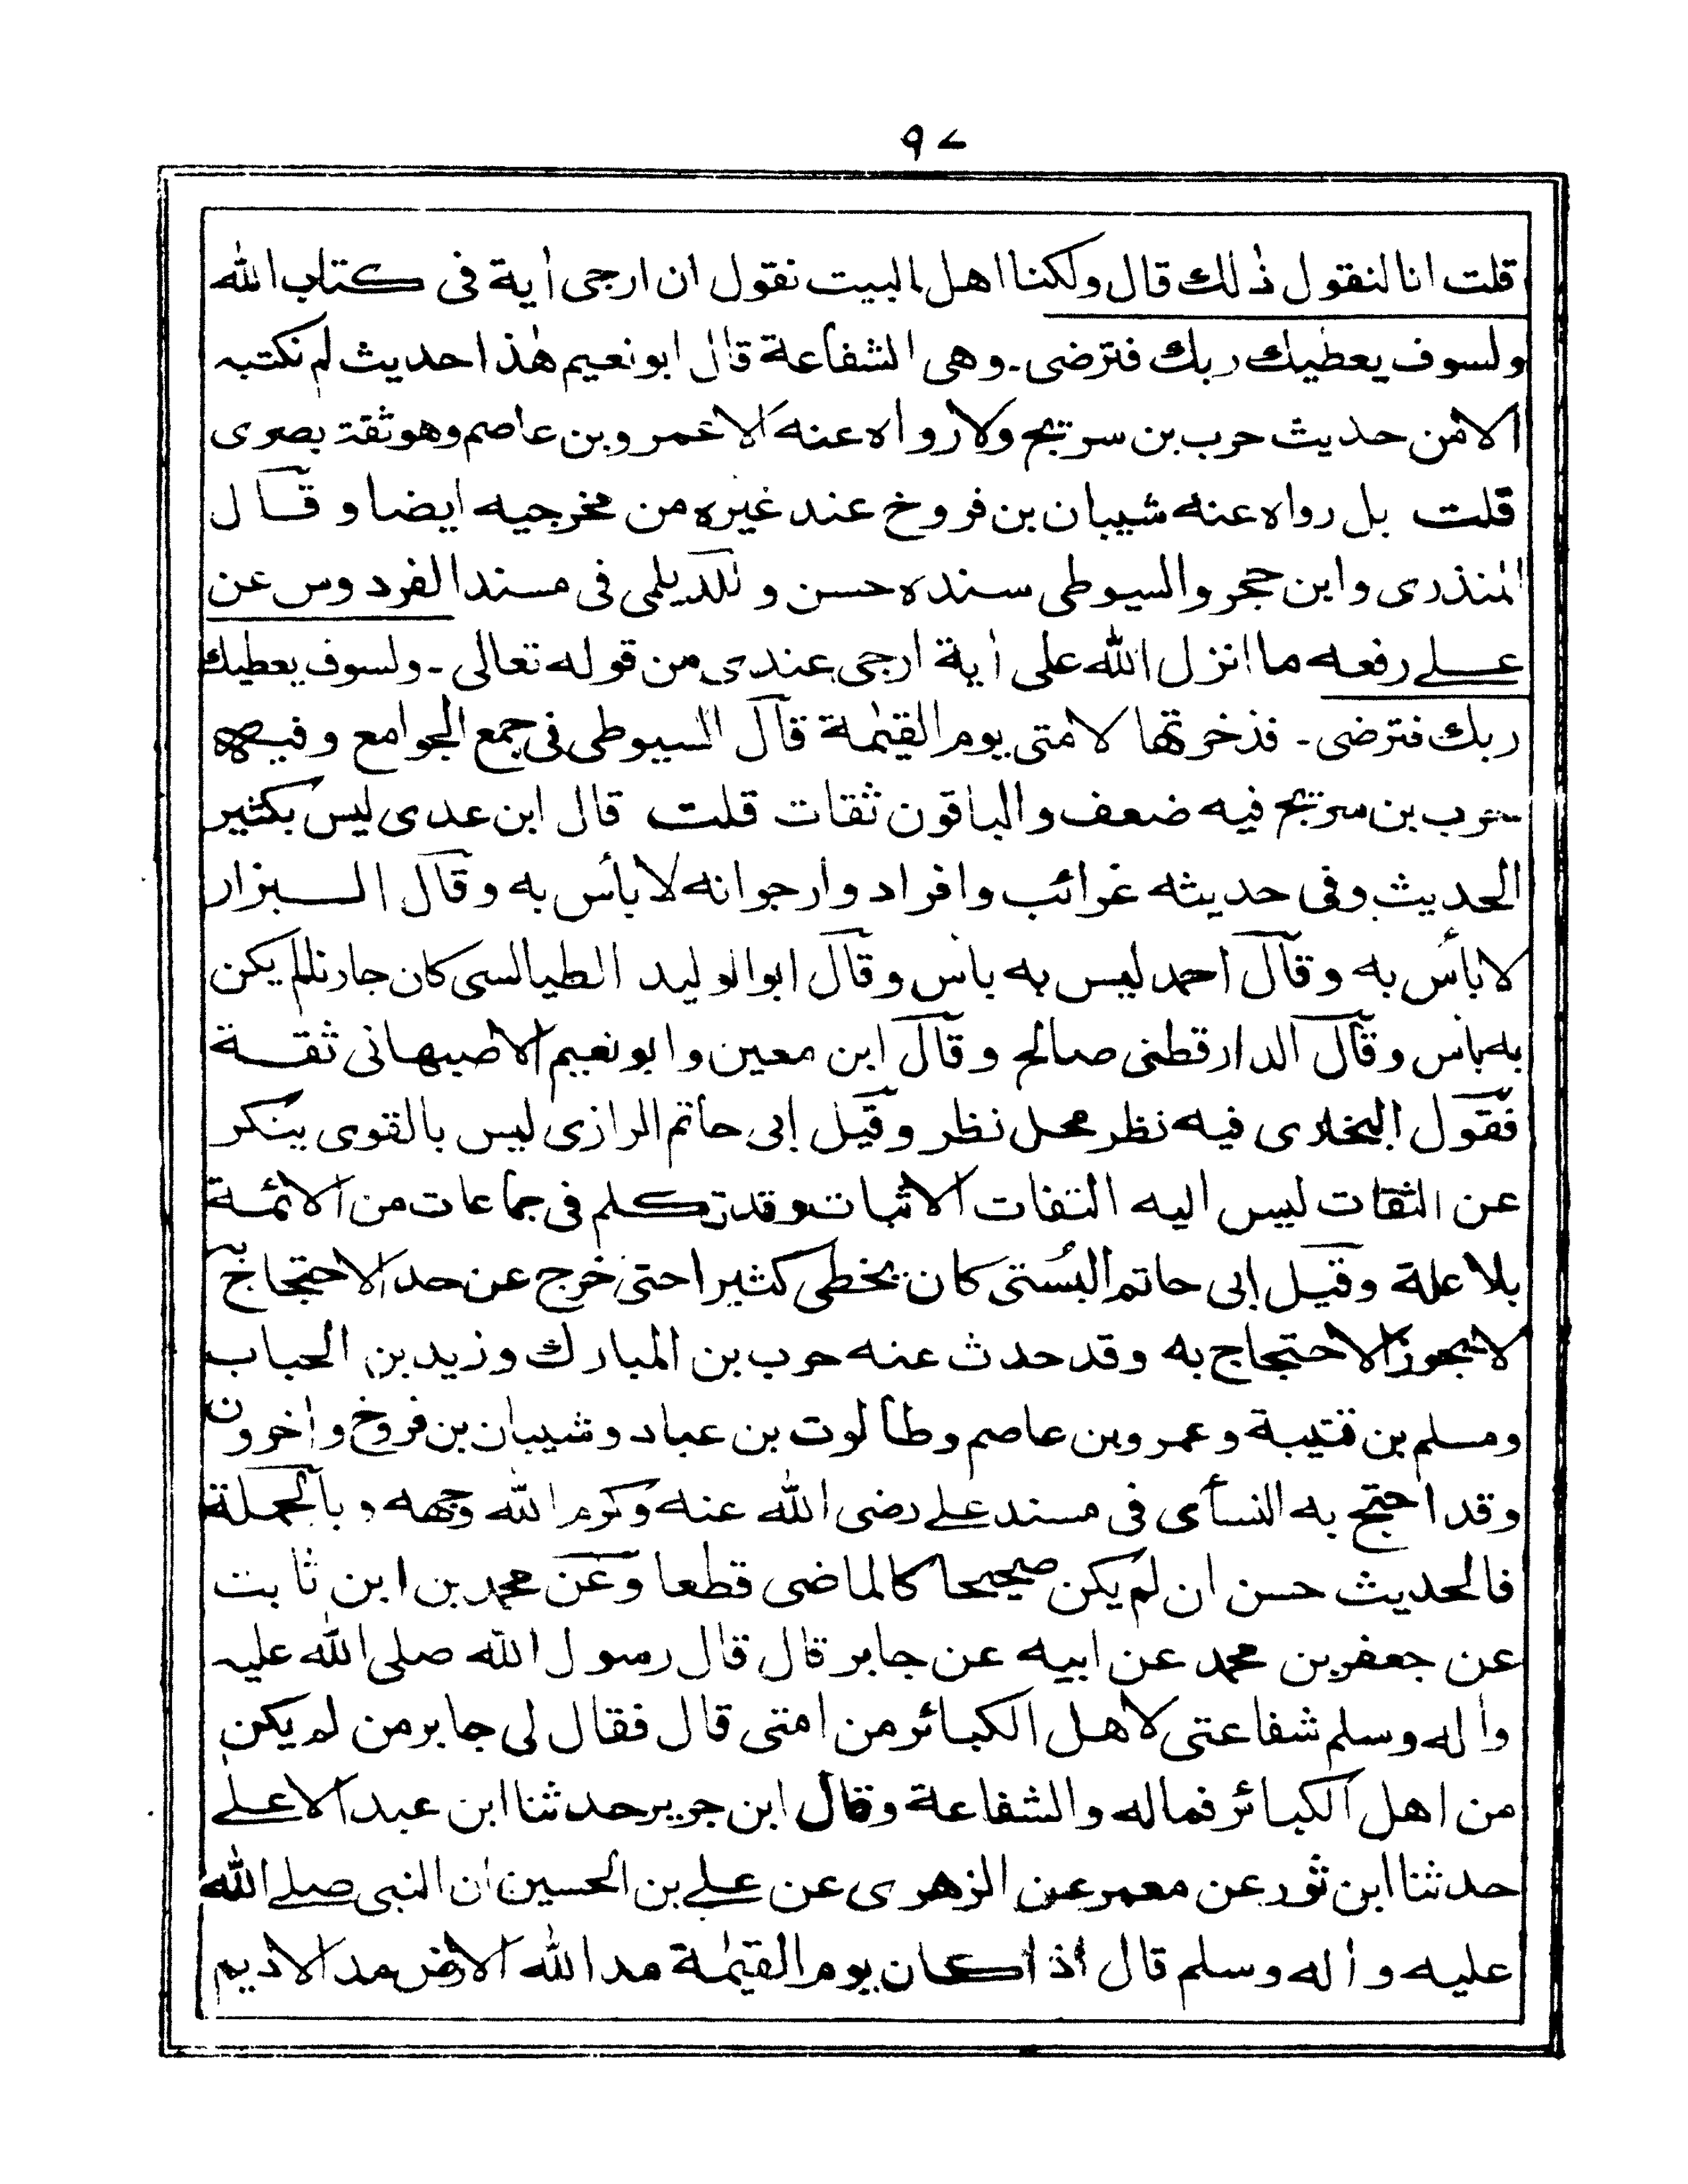 ٩٧
قلت انا لنقول ذٰلك قال ولكنا اهل البيت نقول ان ارجى أية فى كتاب الله
ولسوف يعطيك ربك فترضى۔ وهى الشفاعة قال ابو نعيم هٰذا حديث لم نكتبه
الا من حديث حرب بن سريج ولا رواه عنه الا عمرو بن عاصم وهو ثقة بصرى
قلت بل رواه عنه شيبان بن فروخ عند غيره من مخرجيه ايضا وقال
المنذرى وابن حجر والسيوطى سنده حسن وللديلمى فى مسند الفردوس عن
على رفعه ما انزل الله على أية ارجى عندى من قوله تعالى۔ ولسوف يعطيك
ربك فترضى۔ فذخرتها لامتى يوم القيٰمة قال السيوطى فى جمع الجوامع وفيه
حرب بن سريج فيه ضعف والباقون ثقات قلت قال ابن عدى ليس بكثير
الحديث وفى حديثه غرائب وافراد وارجو انه لا بأس به وقال البزار
لا بأس به وقال احمد ليس به بأس وقال ابو الوليد الطيالسى كان جارنا لم يكن
به بأس وقال الدارقطنى صالح وقال ابن معين وابو نعيم الاصبهانى ثقة
فقول البخارى فيه نظر محل نظر وقيل ابى حاتم الرازى ليس بالقوى ينكر
عن الثقات ليس اليه التفات الاثبات وقد تكلم فى جماعات من الائمة
بلا علة وقيل ابى حاتم البُستى كان يخطى كثيرا حتى خرج عن حد الاحتجاج به
لا يجوز الاحتجاج به وقد حدث عنه حرب بن المبارك وزيد بن الحباب
ومسلم بن قتيبة وعمرو بن عاصم وطالوت بن عباد وشيبان بن فروخ وأخرون
وقد احتج به النسأى فى مسند على رضى الله عنه وكرم الله وجهه وبالجملة
فالحديث حسن ان لم يكن صحيحا كالماضى قطعا وعن محمد بن ابن ثابت
عن جعفر بن محمد عن ابيه عن جابر قال قال رسول الله صلى الله عليه
وأله وسلم شفاعتى لاهل الكبائر من امتى قال فقال لى جابر من لم يكن
من اهل الكبائر فماله والشفاعة وقال ابن جرير حدثنا ابن عبد الاعلى
حدثنا ابن ثور عن معمر عن الزهرى عن على بن الحسين ان النبى صلى الله
عليه وأله وسلم قال اذا كان يوم القيٰمة مد الله الارض مد الاديم